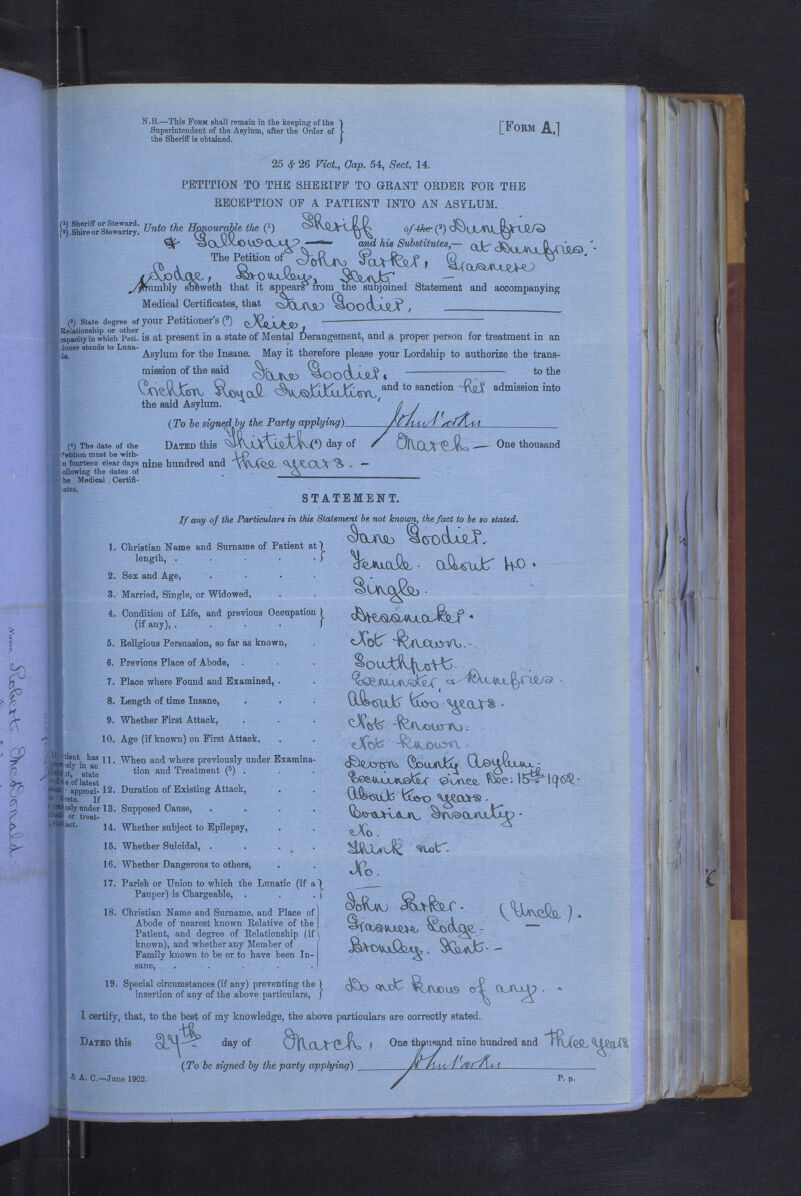 N.B.—This Form shall remain in the keeping of the
Superintendent of the Asylum, after the Order of
the Sheriff is obtained.
[Form A.]
25 & 26 Vict., Cap. 54, Sect. 14.
PETITION TO THE SHERIFF TO GRANT ORDER FOR THE
RECEPTION OF A PATIENT INTO AN ASYLUM.
(1) Sheriff or Steward.
(2) Shire or Stewartry.
Unto the Honourable the (1) Sheriff of the (2) Dumfries
& Galloway — and his Substitutes,— at Dumfries.
The Petition of John Parker, Grasmere
Lodge, Bromley, Kent. —
Humbly sheweth that it appears from the subjoined Statement and accompanying
Medical Certificates, that Jane Goodier,
(3) State degree of
Relationship or other
capacity in which Peti-
tioner stands to Luna-
tic.
your Petitioner's (3) Neice,
is at present in a state of Mental Derangement, and a proper person for treatment in an
Asylum for the Insane. May it therefore please your Lordship to authorize the trans-
mission of the said Jane Goodier, to the
Crichton Royal Institution, and to sanction her admission into
the said Asylum.
(To be signed by the Party applying) John Parker
(4) The date of the
Petition must be with-
n fourteen clear days
ollowing the dates of
he Medical Certifi-
ates.
Dated this Thirtieth (4) day of March — One thousand
nine hundred and three years. —
STATEMENT.
If any of the Particulars in this Statement be not known, the fact to be so stated.
1. Christian Name and Surname of Patient at
length, . Jane Goodier.
2. Sex and Age, Female. about 40.
3. Married, Single, or Widowed, Single.
4. Condition of Life, and previous Occupation
(if any), . Dressmaker.
5. Religious Persuasion, so far as known, Not known.
6. Previous Place of Abode, . Southport.
7. Place where Found and Examined, . Exeminster & Dumfries.
8. Length of time Insane, About two years.
9. Whether First Attack, Not known.
10. Age (if known) on First Attack, Not known.
tient has
sly in an
it, state
e of latest
approxi-
reto. If
usly under
or treat-
act.
11. When and where previously under Examina-
tion and Treatment (5) . Devon County Asylum.
Exeminster since Dec: 15th 1902.
12. Duration of Existing Attack, About two years.
13. Supposed Cause, Ovarian Insanity.
14. Whether subject to Epilepsy, No.
15. Whether Suicidal, . Think not.
16. Whether Dangerous to others, No.
17. Parish or Union to which the Lunatic (if a
Pauper) is Chargeable, . —
18. Christian Name and Surname, and Place of
Abode of nearest known Relative of the
Patient, and degree of Relationship (if
known), and whether any Member of
Family known to be or to have been In-
sane,
John Parker. (Uncle).
Grasmere Lodge. —
Bromley. Kent. —
19. Special circumstances (if any) preventing the
insertion of any of the above particulars, Do not know of any.
I certify, that, to the best of my knowledge, the above particulars are correctly stated.
Dated this 27th day of March, One thousand nine hundred and Three years
(To be signed by the party applying) John Parker
& A. C.—June 1902.
P. p.
Name Robert McDonald